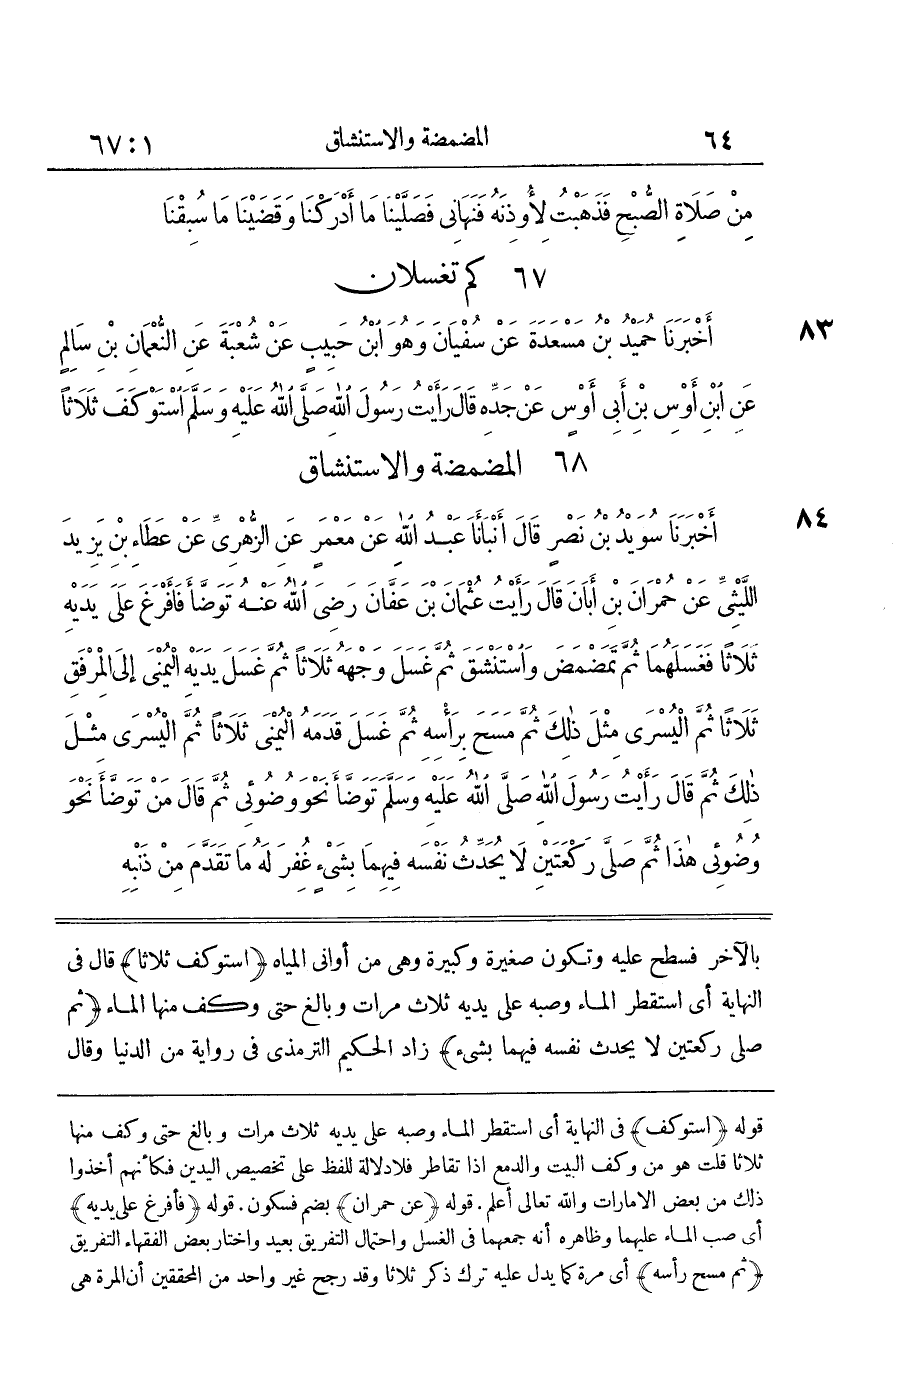 ٦٤ المضمضة والاستنشاق ١ : ٦٧
مِنْ صَلَاةِ الصُّبْحِ فَذَهَبْتُ لِأُوذِنَهُ فَنَهَانِى فَصَلَّيْنَا مَا أَدْرَكْنَا وَقَضَيْنَا مَا سُبِقْنَا
٦٧ كم تغسلان
٨٣ أَخْبَرَنَا حُمَيْدُ بْنُ مَسْعَدَةَ عَنْ سُفْيَانَ وَهُوَ ابْنُ حَبِيبٍ عَنْ شُعْبَةَ عَنِ النُّعْمَانِ بْنِ سَالِمٍ
عَنِ ابْنِ أَوْسِ بْنِ أَبِى أَوْسٍ عَنْ جَدِّهِ قَالَ رَأَيْتُ رَسُولَ اللهِ صَلَّى اللهُ عَلَيْهِ وَسَلَّمَ اسْتَوْكَفَ ثَلَاثًا
٦٨ المضمضة والاستنشاق
٨٤ أَخْبَرَنَا سُوَيْدُ بْنُ نَصْرٍ قَالَ أَنْبَأَنَا عَبْدُ اللهِ عَنْ مَعْمَرٍ عَنِ الزُّهْرِىِّ عَنْ عَطَاءِ بْنِ يَزِيدَ
اللَّيْثِىِّ عَنْ حُمْرَانَ بْنِ أَبَانَ قَالَ رَأَيْتُ عُثْمَانَ بْنَ عَفَّانَ رَضِىَ اللهُ عَنْهُ تَوَضَّأَ فَأَفْرَغَ عَلَى يَدَيْهِ
ثَلَاثًا فَغَسَلَهُمَا ثُمَّ تَمَضْمَضَ وَاسْتَنْشَقَ ثُمَّ غَسَلَ وَجْهَهُ ثَلَاثًا ثُمَّ غَسَلَ يَدَيْهِ الْيُمْنَى إِلَى الْمِرْفَقِ
ثَلَاثًا ثُمَّ الْيُسْرَى مِثْلَ ذٰلِكَ ثُمَّ مَسَحَ بِرَأْسِهِ ثُمَّ غَسَلَ قَدَمَهُ الْيُمْنَى ثَلَاثًا ثُمَّ الْيُسْرَى مِثْلَ
ذٰلِكَ ثُمَّ قَالَ رَأَيْتُ رَسُولَ اللهِ صَلَّى اللهُ عَلَيْهِ وَسَلَّمَ تَوَضَّأَ نَحْوَ وُضُوئِى ثُمَّ قَالَ مَنْ تَوَضَّأَ نَحْوَ
وُضُوئِى هٰذَا ثُمَّ صَلَّى رَكْعَتَيْنِ لَا يُحَدِّثُ نَفْسَهُ فِيهِمَا بِشَىْءٍ غُفِرَ لَهُ مَا تَقَدَّمَ مِنْ ذَنْبِهِ
بالآخر فسطح عليه وتكون صغيرة وكبيرة وهى من أوانى المياه ﴿استوكف ثلاثا﴾ قال فى
النهاية أى استقطر الماء وصبه على يديه ثلاث مرات وبالغ حتى وكف منها الماء ﴿ثم
صلى ركعتين لا يحدث نفسه فيهما بشىء﴾ زاد الحكيم الترمذى فى رواية من الدنيا وقال
قوله ﴿استوكف﴾ فى النهاية أى استقطر الماء وصبه على يديه ثلاث مرات وبالغ حتى وكف منها
ثلاثا قلت هو من وكف البيت والدمع اذا تقاطر فلا دلالة للفظ على تخصيص اليدين فكأنهم أخذوا
ذلك من بعض الامارات والله تعالى أعلم . قوله ﴿عن حمران﴾ بضم فسكون . قوله ﴿فأفرغ على يديه﴾
أى صب الماء عليهما وظاهره أنه جمعهما فى الغسل واحتمال التفريق بعيد واختار بعض الفقهاء التفريق
﴿ثم مسح رأسه﴾ أى مرة كما يدل عليه ترك ذكر ثلاثا وقد رجح غير واحد من المحققين أن المرة هى